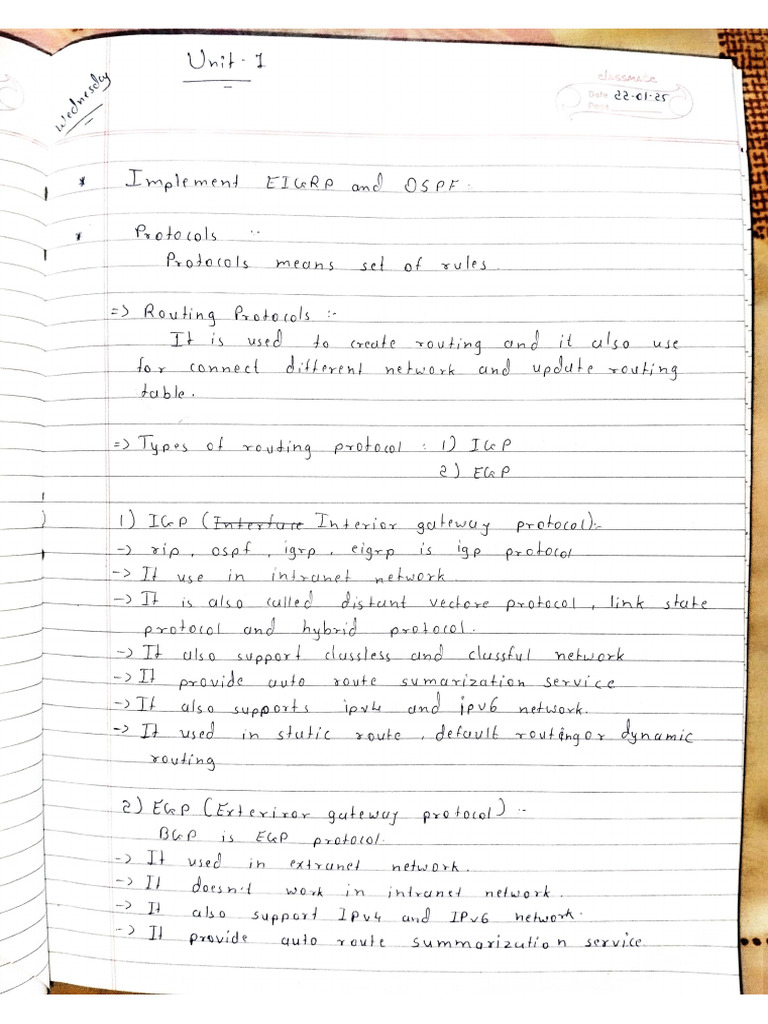 Unit-1
Wednesday
classmate
Date 22-01-25
Page
* Implement EIGRP and OSPF:
* Protocols :-
Protocols means set of rules.
=> Routing Protocols :-
It is used to create routing and it also use
for connect different network and update routing
table.
=> Types of routing protocol : 1) IGP
2) EGP
1) IGP (Interfure Interior gateway protocol):-
-> rip, ospf, igrp, eigrp is igp protocol
-> It use in intranet network.
-> It is also called distant vectore protocol, link state
protocol and hybrid protocol.
-> It also support classless and classful network
-> It provide auto route sumarization service
-> It also supports ipv4 and ipv6 network.
-> It used in static route, default routing or dynamic
routing
2) EGP (Exteriror gateway protocol) :-
BGP is EGP protocol.
-> It used in extranet network.
-> It doesn't work in intranet network.
-> It also support IPv4 and IPv6 network.
-> It provide auto route summarization service.